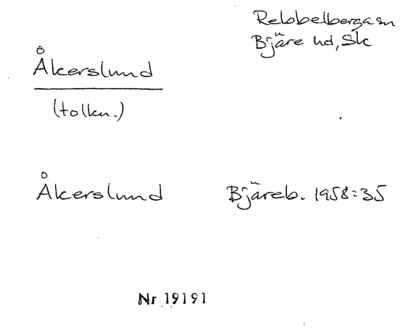 Rebbelberga sn
Bjäre hd, Sk
Åkerslund
(tolkn.)
Åkerslund Bjäreb. 1958:35
Nr 19191